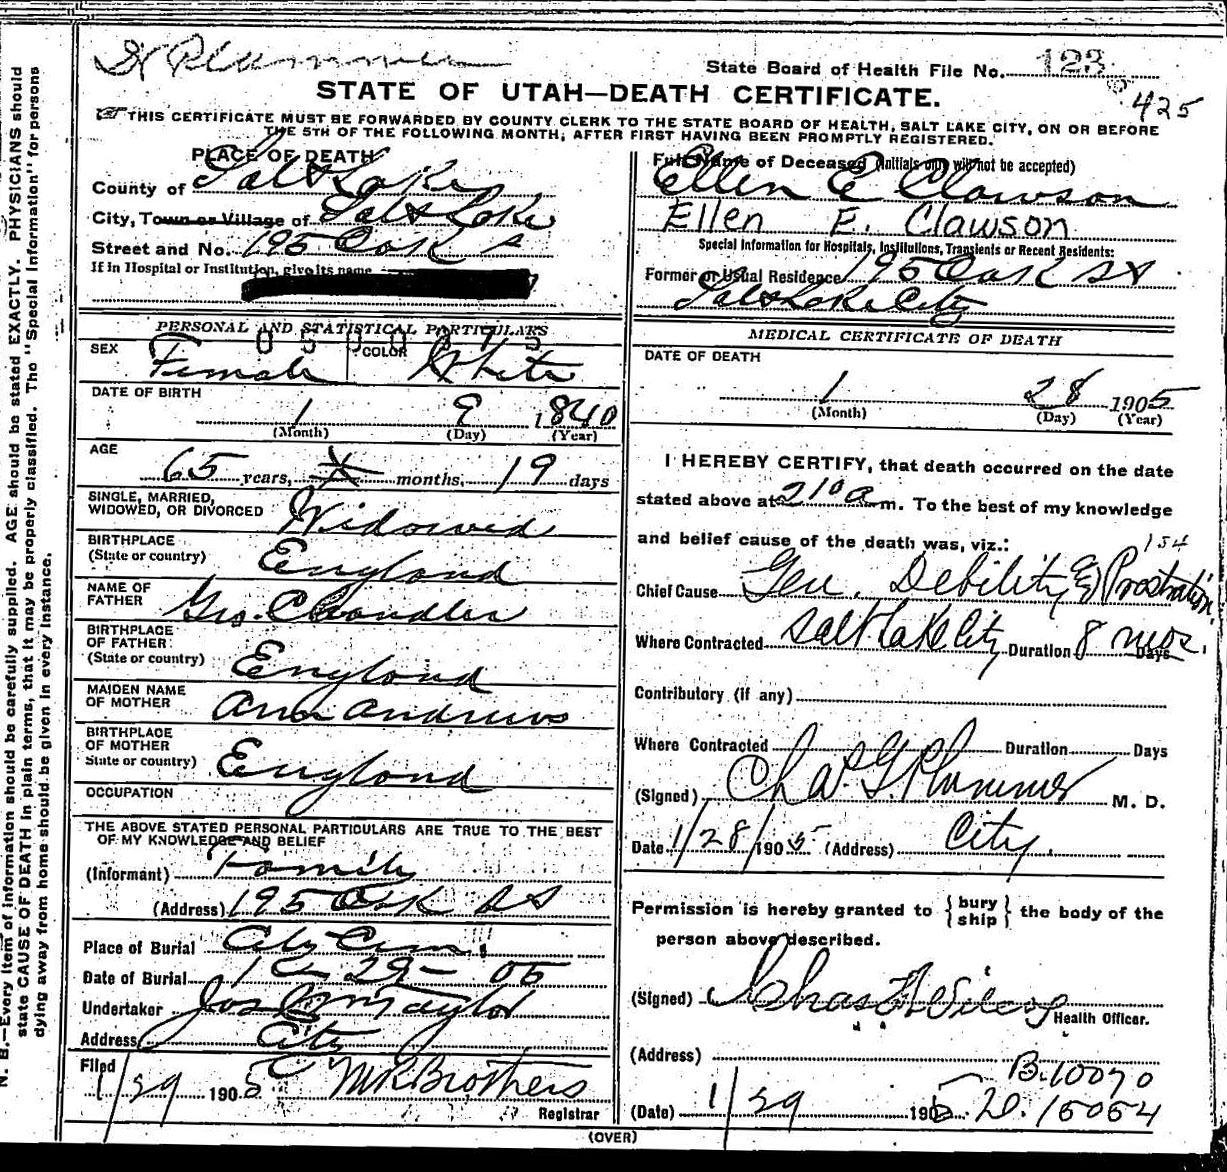 Dr Plummer
State Board of Health File No. 123
425
STATE OF UTAH—DEATH CERTIFICATE.
THIS CERTIFICATE MUST BE FORWARDED BY COUNTY CLERK TO THE STATE BOARD OF HEALTH, SALT LAKE CITY, ON OR BEFORE
THE 5TH OF THE FOLLOWING MONTH, AFTER FIRST HAVING BEEN PROMPTLY REGISTERED.
PLACE OF DEATH
County of Salt Lake
City, Town or Village of Salt Lake
Street and No. 195 Oak St
If in Hospital or Institution, give its name
PERSONAL AND STATISTICAL PARTICULARS
0500375
SEX Female COLOR White
DATE OF BIRTH 1 9 1840
(Month) (Day) (Year)
AGE 65 years, months, 19 days
SINGLE, MARRIED,
WIDOWED, OR DIVORCED Widowed
BIRTHPLACE
(State or country) England
NAME OF
FATHER Geo. Chandler
BIRTHPLACE
OF FATHER
(State or country) England
MAIDEN NAME
OF MOTHER Ann Andrews
BIRTHPLACE
OF MOTHER
State or country) England
OCCUPATION
THE ABOVE STATED PERSONAL PARTICULARS ARE TRUE TO THE BEST
OF MY KNOWLEDGE AND BELIEF
(Informant) Family
(Address) 195 Oak St
Place of Burial City Cem.
Date of Burial 1 29 - 05
Undertaker Jos Wm Taylor
Address City
Filed
1/29 1905 Brothers
Registrar
Full Name of Deceased (Initials only will not be accepted)
Ellen E Clawson
Ellen E. Clawson
Special Information for Hospitals, Institutions, Transients or Recent Residents:
Former or Usual Residence 195 Oak St
Salt Lake City
MEDICAL CERTIFICATE OF DEATH
DATE OF DEATH
1 28 1905
(Month) (Day) (Year)
I HEREBY CERTIFY, that death occurred on the date
stated above at 2 10 a m. To the best of my knowledge
and belief cause of the death was, viz.: 154
Chief Cause Gen. Debility & Prostration.
Where Contracted Salt Lake City Duration 8 mos. Days
Contributory (if any)
Where Contracted Duration Days
(Signed) Chas. G. Plummer M. D.
Date 1/28/1905 (Address) City.
Permission is hereby granted to {bury ship} the body of the
person above described.
(Signed) Chas Wilcox
Health Officer.
(Address)
B. 10070
(Date) 1/29 1905 D. 15054
(OVER)
N. B.—Every item of information should be carefully supplied. AGE should be stated EXACTLY. PHYSICIANS should
state CAUSE OF DEATH in plain terms, that it may be properly classified. The "Special Information" for persons
dying away from home should be given in every instance.